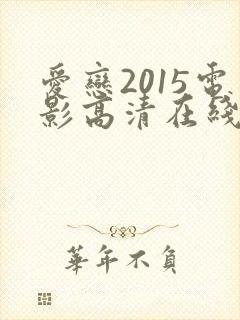 愛戀2015電
影高清在綫
華年不負